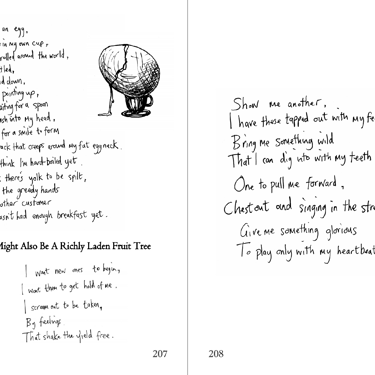 an egg,
in my own cup,
rolled around the world,
led,
down,
pointing up,
waiting for a spoon
into my head,
for a smile to form
crack that creeps around my fat eggneck.
think I'm hard-boiled yet.
there's yolk to be spilt,
the greedy hands
other customer
hasn't had enough breakfast yet.
Might Also Be A Richly Laden Fruit Tree
I want new ones to begin,
I want them to get hold of me.
I scream out to be taken,
By feelings
That shake the yield free.
207
Show me another,
I have these tapped out with my fe
Bring me something wild
That I can dig into with my teeth
One to pull me forward,
Chest out and singing in the stre
Give me something glorious
To play only with my heartbeat
208